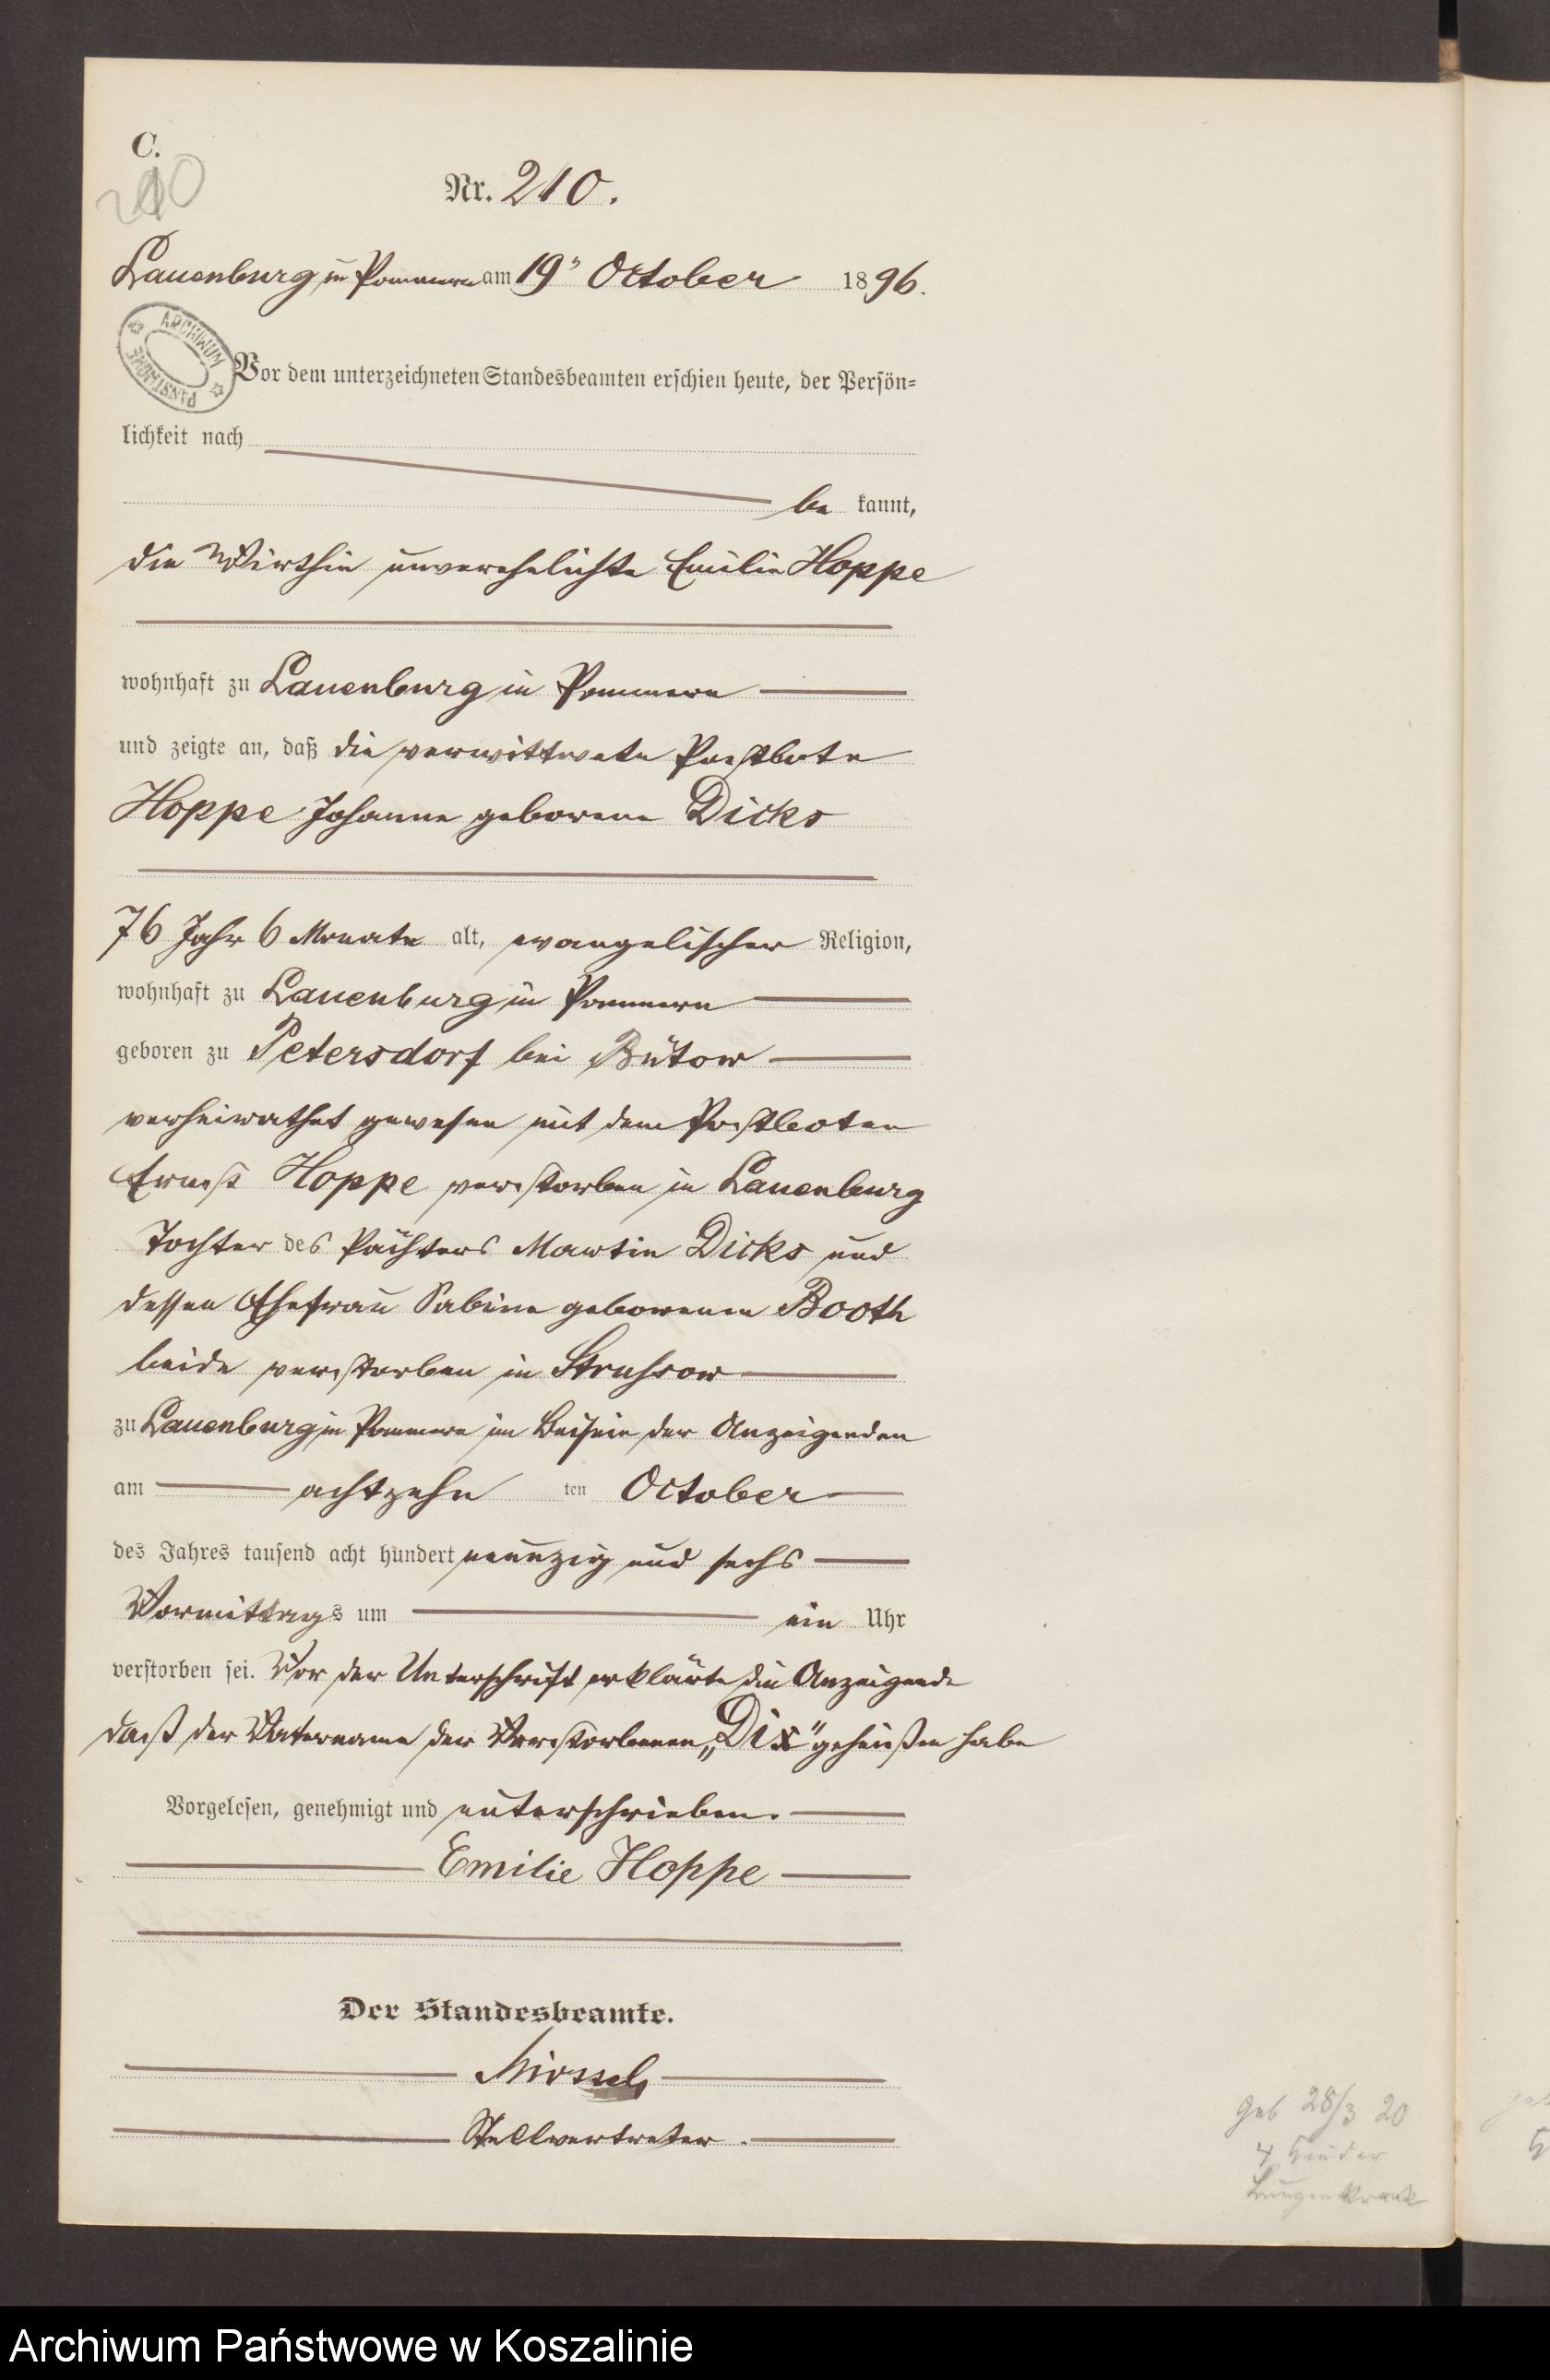 C.
210
Nr. 210.
Lauenburg in Pommern am 19ⁿ October 1896.
ARCHIWUM PAŃSTWOWE
Vor dem unterzeichneten Standesbeamten erschien heute, der Persön-
lichkeit nach
be kannt,
die Wirthin unverehelichte Emilie Hoppe
wohnhaft zu Lauenburg in Pommern
und zeigte an, daß die verwittwete Postbote
Hoppe Johanne geborene Dicks
76 Jahr 6 Monate alt, evangelischer Religion,
wohnhaft zu Lauenburg in Pommern
geboren zu Petersdorf bei Bütow
verheirathet gewesen mit dem Postboten
Ernst Hoppe verstorben in Lauenburg
Tochter des Pächters Martin Dicks und
dessen Ehefrau Sabine geborenen Booth
beide verstorben in Struhsow
zu Lauenburg in Pommern im Beisein der Anzeigenden
am achtzehn ten October
des Jahres tausend acht hundert neunzig und sechs
Vormittags um ein Uhr
verstorben sei. Vor der Unterschrift erklärte die Anzeigende
daß der Vatername der Verstorbenen „Dix" geheißen habe
Vorgelesen, genehmigt und unterschrieben.
Emilie Hoppe
Der Standesbeamte.
Stellvertreter.
geb 28/3 20
4 Kinder
Lungenkrank
Archiwum Państwowe w Koszalinie